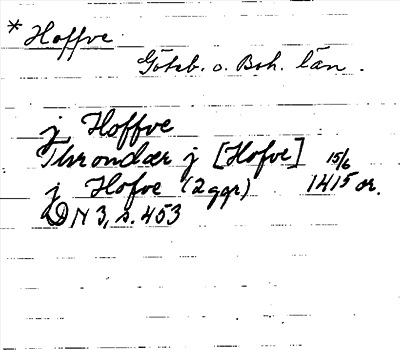 * Hoffve
Göteb. o. Boh. län.
j Hoffve
Throndær j [Hofve] 15/6
j Hofve (2 ggr) 1415 or.
DN 3, s. 453